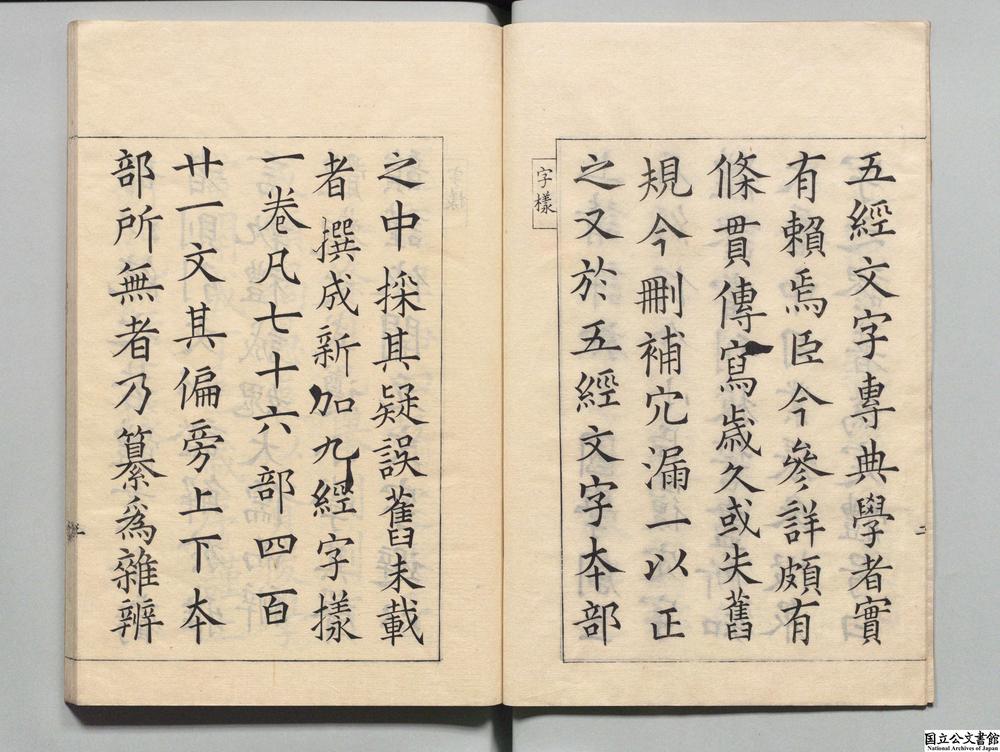 五經文字專典學者實
有賴焉臣今參詳頗有
條貫傳寫歲久或失舊
規今刪補宂漏一以正
之又於五經文字本部
字樣
之中採其疑誤舊未載
者撰成新加九經字樣
一卷凡七十六部四百
廿一文其偏旁上下本
部所無者乃纂爲雜辨
国立公文書館
National Archives of Japan